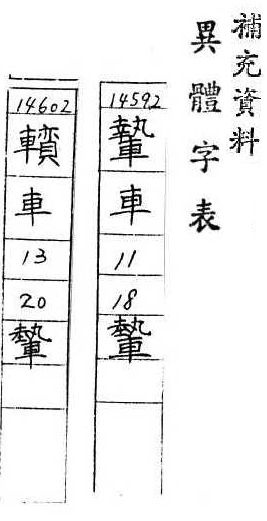 補充資料
異體字表
14592
車
11
18
14602
車
13
20